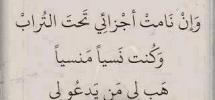 وَإِنْ نَامتْ أَجْزَائي تَحتَ التُرابْ
وَكُنت نَسياً مَنسياً
هَب لي مَن يَدعُو لي